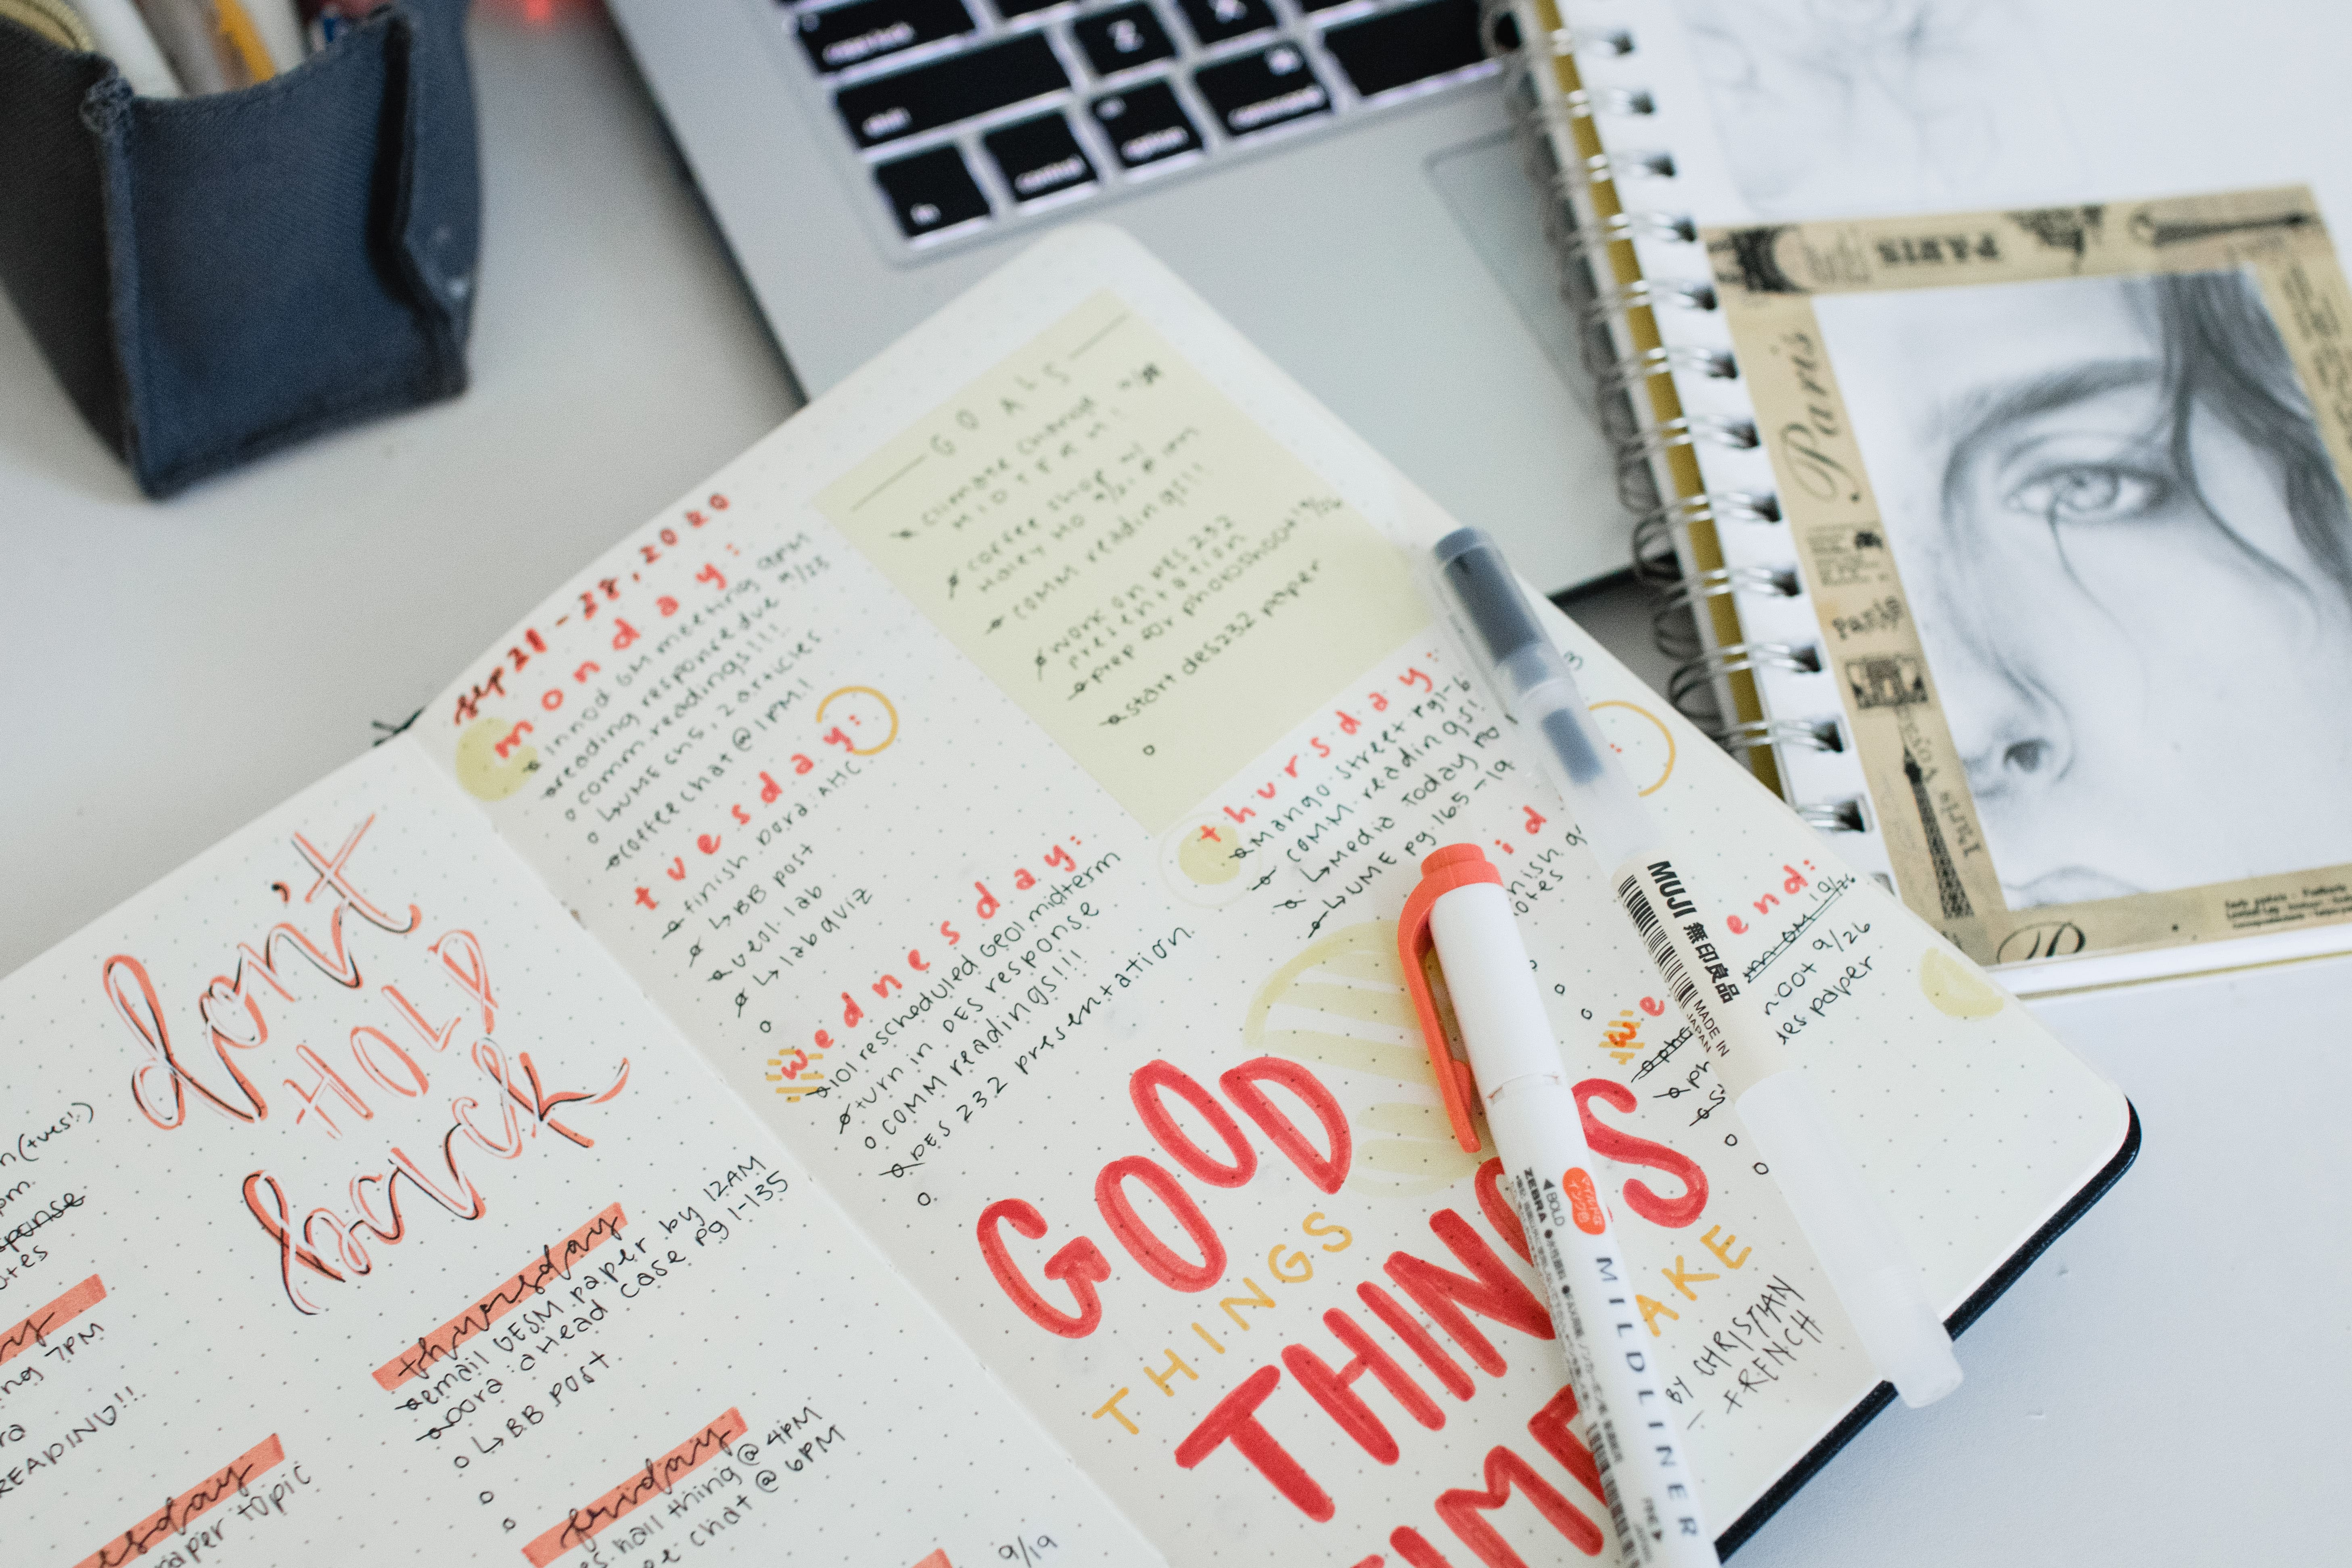 Z
X
shift
fn
control
option
command
don't
HOLD
back
n (tues!)
pm
sponse
utes
ng 7PM
READING!!
paper topic
thursday
email GESM paper by 12AM
dora: ahead case pg 1-135
↳ BB post
friday
hall thing @ 4PM
chat @ 6PM
9/19
sep 21-28, 2020
monday:
innod GM meeting 9PM
reading response due 9/23
comm readings!!!
↳ UME ch5, 2 articles
coffee chat @ 1PM!
tuesday:
finish dora: AHC
↳ BB post
geol lab
↳ lab quiz
wednesday:
101 rescheduled Geol midterm
turn in DES response
COMM readings!!!
DES 232 presentation
GOALS
climate change
MIDTERM!
coffee shop w/
Haley Ho 9/21 @ 1PM
COMM readings!!
work on DES 232
presentation
prep for photoshoot! 9/26
start des232 paper
thursday:
mango street pg 1-6
COMM readings!
↳ Media Today
↳ UME pg. 165-19
id
nish
otes
we
end:
9/26
hoot 9/26
des paper
GOOD
THINGS
THINGS
AKE
TIME
BY CHRISTIAN
FRENCH
MUJI 無印良品
MADE IN
JAPAN
BOLD
ZEBRA
MILDLINER
PARIS
Paris
Paris
Paris